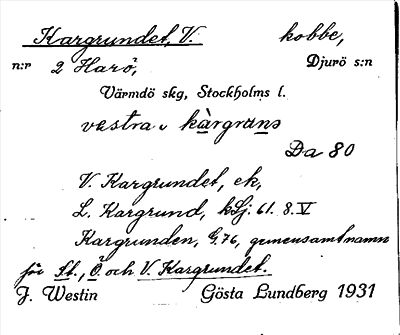 Kargrundet, V. kobbe,
n:r 2 Harö, Djurö s:n
Värmdö skg, Stockholms l.
västra ı kàrgrunə
Da 80
V. Kargrundet, ek,
L. Kargrund, kSj. 61. 8. V
Kargrunden, G. 76, gemensamt namn
för St., Ö. och V. Kargrundet.
J. Westin Gösta Lundberg 1931